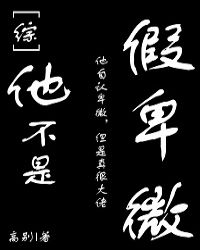 [综]
他不是
假卑微
他自认卑微，但是真很大佬
高别|著